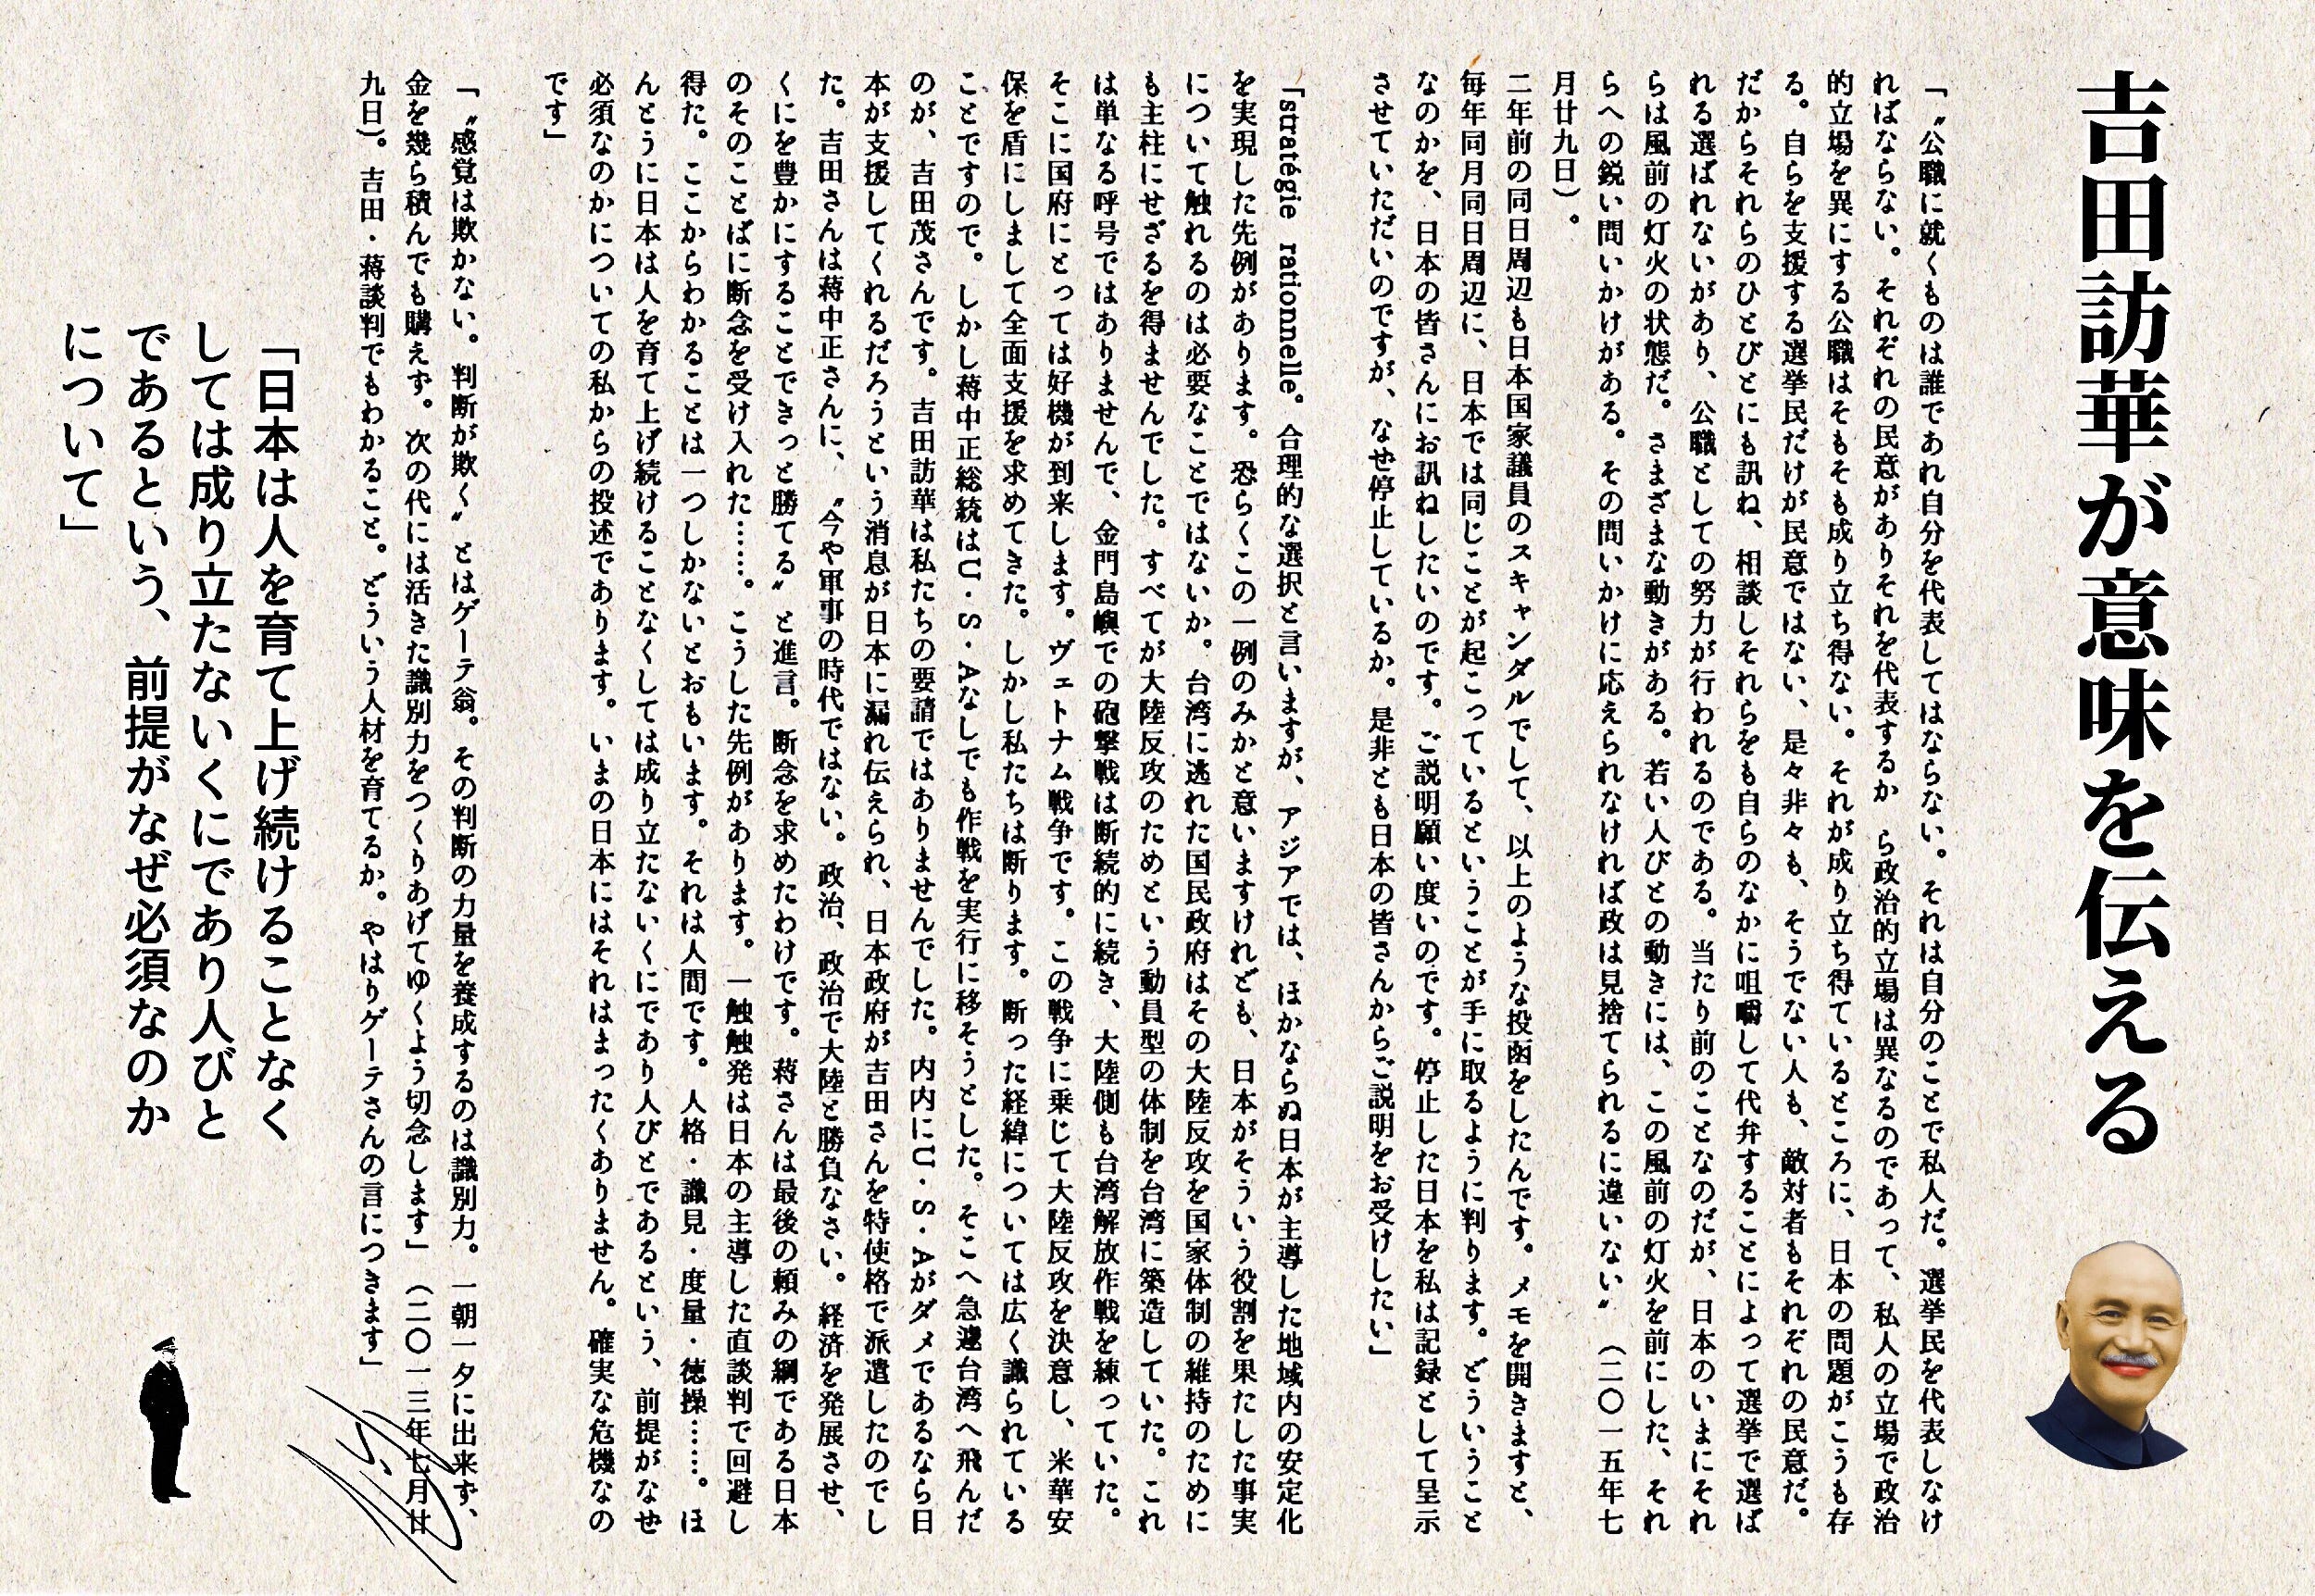 吉田訪華が意味を伝える
「〝公職に就くものは誰であれ自分を代表してはならない。それは自分のことで私人だ。選挙民を代表しなけ
ればならない。それぞれの民意がありそれを代表するか ら政治的立場は異なるのであって、私人の立場で政治
的立場を異にする公職はそもそも成り立ち得ない。それが成り立ち得ているところに、日本の問題がこうも存
る。自らを支援する選挙民だけが民意ではない、是々非々も、そうでない人も、敵対者もそれぞれの民意だ。
だからそれらのひとびとにも訊ね、相談しそれらをも自らのなかに咀嚼して代弁することによって選挙で選ば
れる選ばれないがあり、公職としての努力が行われるのである。当たり前のことなのだが、日本のいまにそれ
らは風前の灯火の状態だ。さまざまな動きがある。若い人びとの動きには、この風前の灯火を前にした、それ
らへの鋭い問いかけがある。その問いかけに応えられなければ政は見捨てられるに違いない〟（二〇一五年七
月廿九日）。
二年前の同日周辺も日本国家議員のスキャンダルでして、以上のような投函をしたんです。メモを開きますと、
毎年同月同日周辺に、日本では同じことが起こっているということが手に取るように判ります。どういうこと
なのかを、日本の皆さんにお訊ねしたいのです。ご説明願い度いのです。停止した日本を私は記録として呈示
させていただいのですが、なぜ停止しているか。是非とも日本の皆さんからご説明をお受けしたい」
「stratégie rationnelle。合理的な選択と言いますが、アジアでは、ほかならぬ日本が主導した地域内の安定化
を実現した先例があります。恐らくこの一例のみかと意いますけれども、日本がそういう役割を果たした事実
について触れるのは必要なことではないか。台湾に逃れた国民政府はその大陸反攻を国家体制の維持のために
も主柱にせざるを得ませんでした。すべてが大陸反攻のためという動員型の体制を台湾に築造していた。これ
は単なる呼号ではありませんで、金門島嶼での砲撃戦は断続的に続き、大陸側も台湾解放作戦を練っていた。
そこに国府にとっては好機が到来します。ヴェトナム戦争です。この戦争に乗じて大陸反攻を決意し、米華安
保を盾にしまして全面支援を求めてきた。しかし私たちは断ります。断った経緯については広く識られている
ことですので。しかし蒋中正総統はU・S・Aなしでも作戦を実行に移そうとした。そこへ急遽台湾へ飛んだ
のが、吉田茂さんです。吉田訪華は私たちの要請ではありませんでした。内内にU・S・Aがダメであるなら日
本が支援してくれるだろうという消息が日本に漏れ伝えられ、日本政府が吉田さんを特使格で派遣したのでし
た。吉田さんは蒋中正さんに、〝今や軍事の時代ではない。政治、政治で大陸と勝負なさい。経済を発展させ、
くにを豊かにすることできっと勝てる〟と進言。断念を求めたわけです。蒋さんは最後の頼みの綱である日本
のそのことばに断念を受け入れた……。こうした先例があります。一触触発は日本の主導した直談判で回避し
得た。ここからわかることは一つしかないとおもいます。それは人間です。人格・識見・度量・徳操……。ほ
んとうに日本は人を育て上げ続けることなくしては成り立たないくにであり人びとであるという、前提がなぜ
必須なのかについての私からの投述であります。いまの日本にはそれはまったくありません。確実な危機なの
です」
「〝感覚は欺かない。判断が欺く〟とはゲーテ翁。その判断の力量を養成するのは識別力。一朝一夕に出来ず、
金を幾ら積んでも購えず。次の代には活きた識別力をつくりあげてゆくよう切念します」（二〇一三年七月廿
九日）。吉田・蒋談判でもわかること。どういう人材を育てるか。やはりゲーテさんの言につきます」
「日本は人を育て上げ続けることなく
しては成り立たないくにであり人びと
であるという、前提がなぜ必須なのか
について」